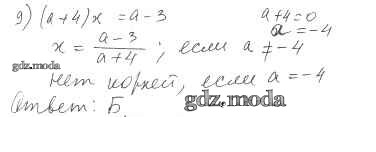 9) (a+4)x = a-3     a+4=0
a = -4
x = \frac{a-3}{a+4} ; если a ≠ -4
gdz.moda
нет корней, если a = -4
Ответ: Б.
gdz.moda